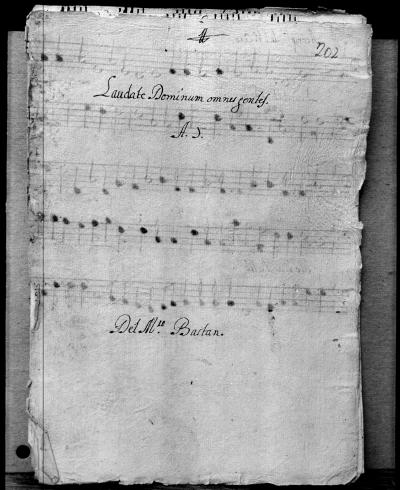 202
Laudate Dominum omnes gentes.
A. 5.
Del M.ro Bastan.